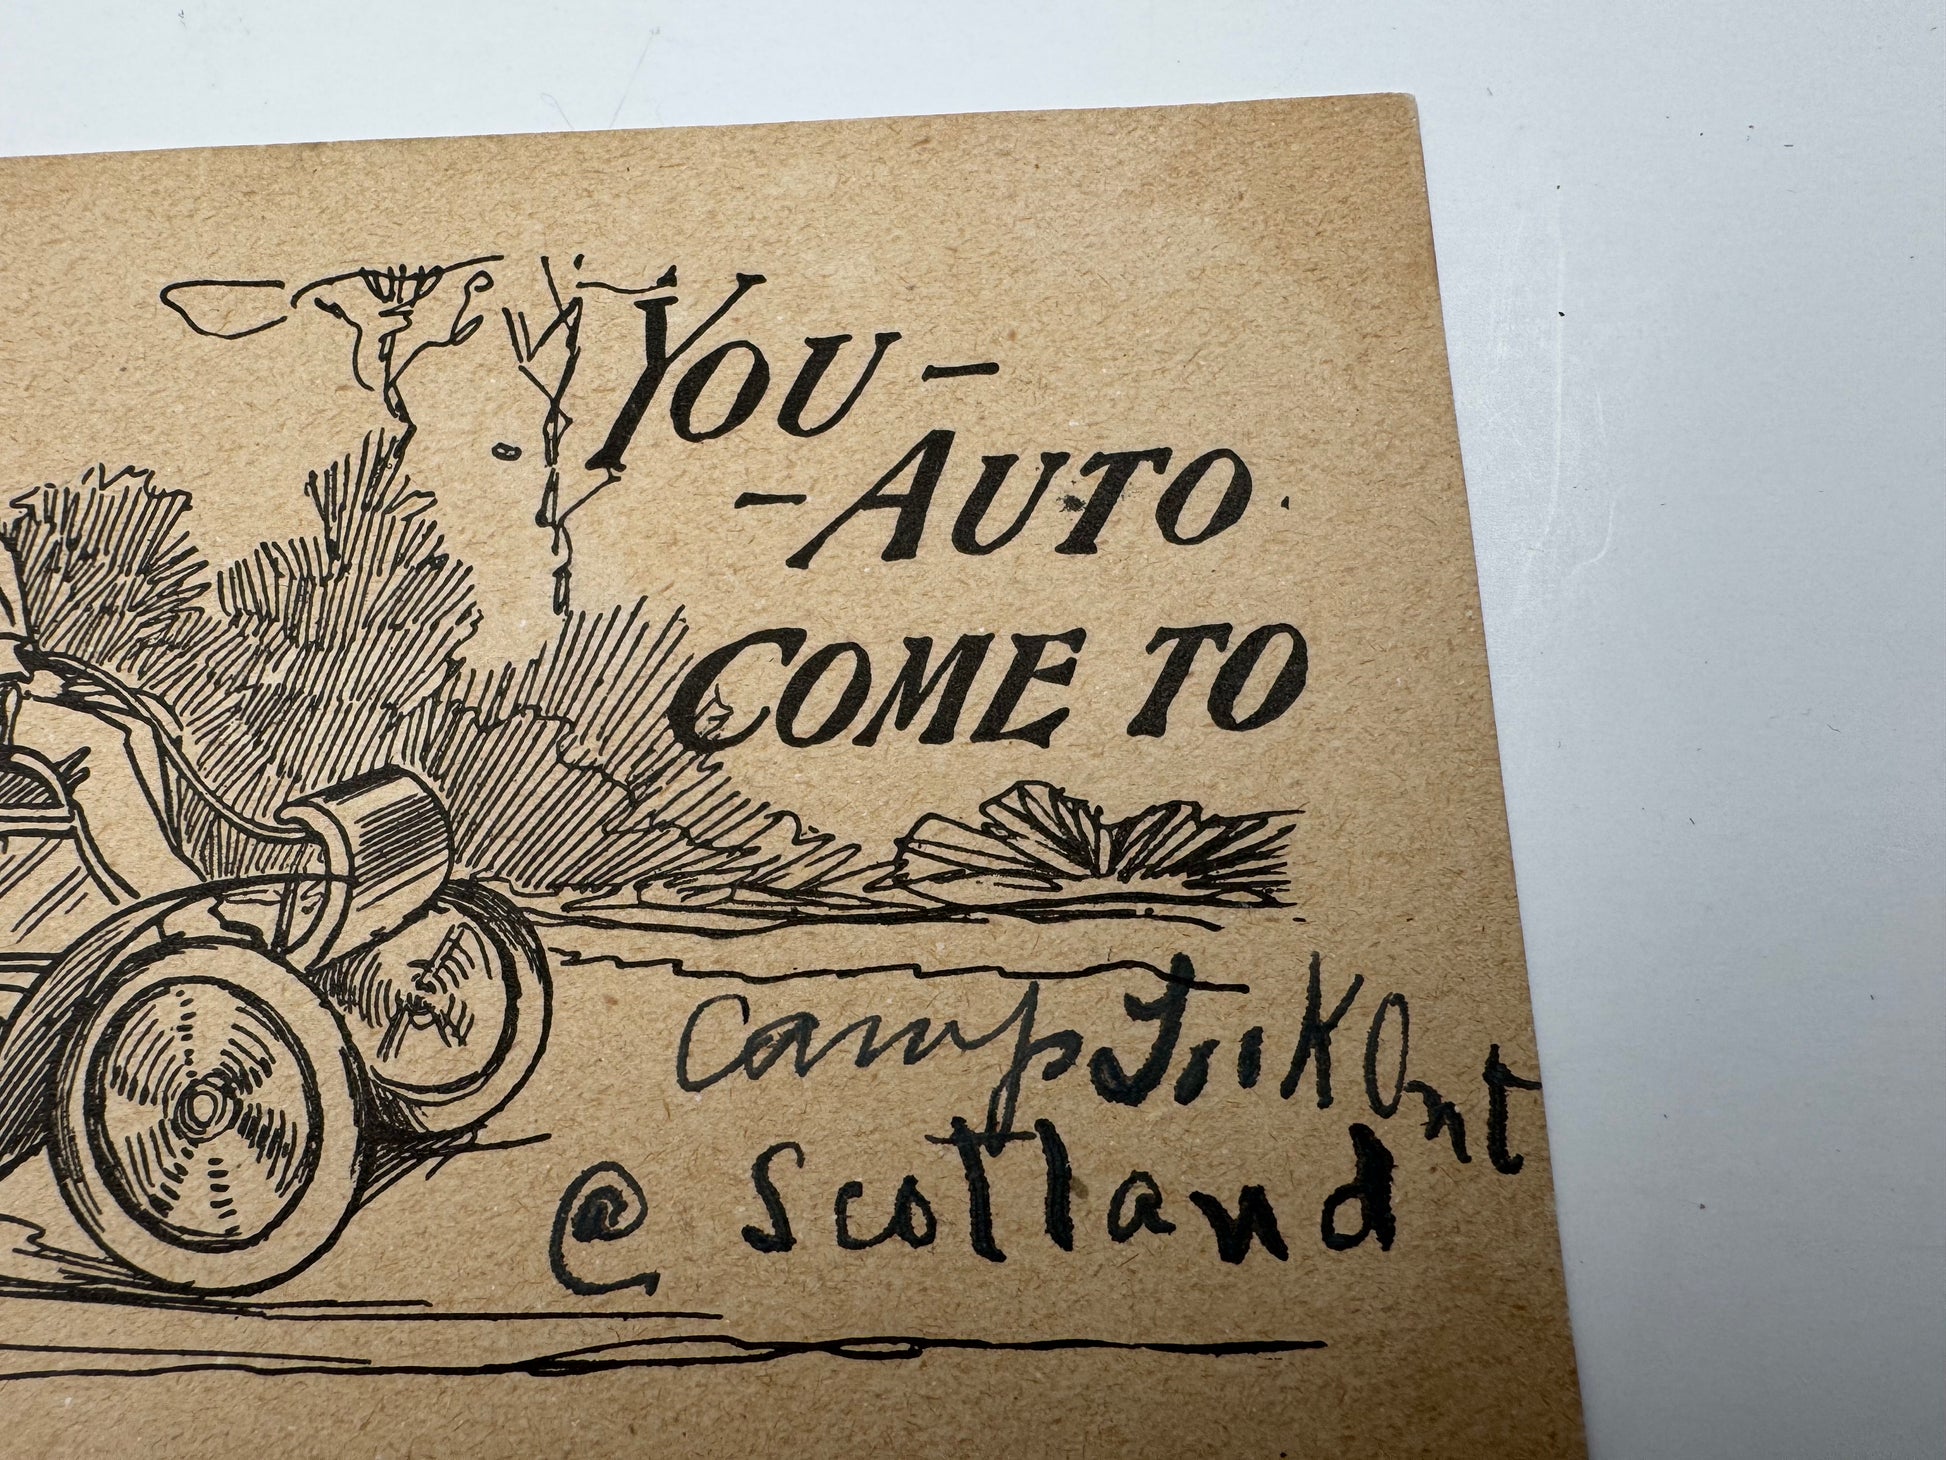 YOU -
- AUTO
COME TO
Camp Ont
@ Scotland